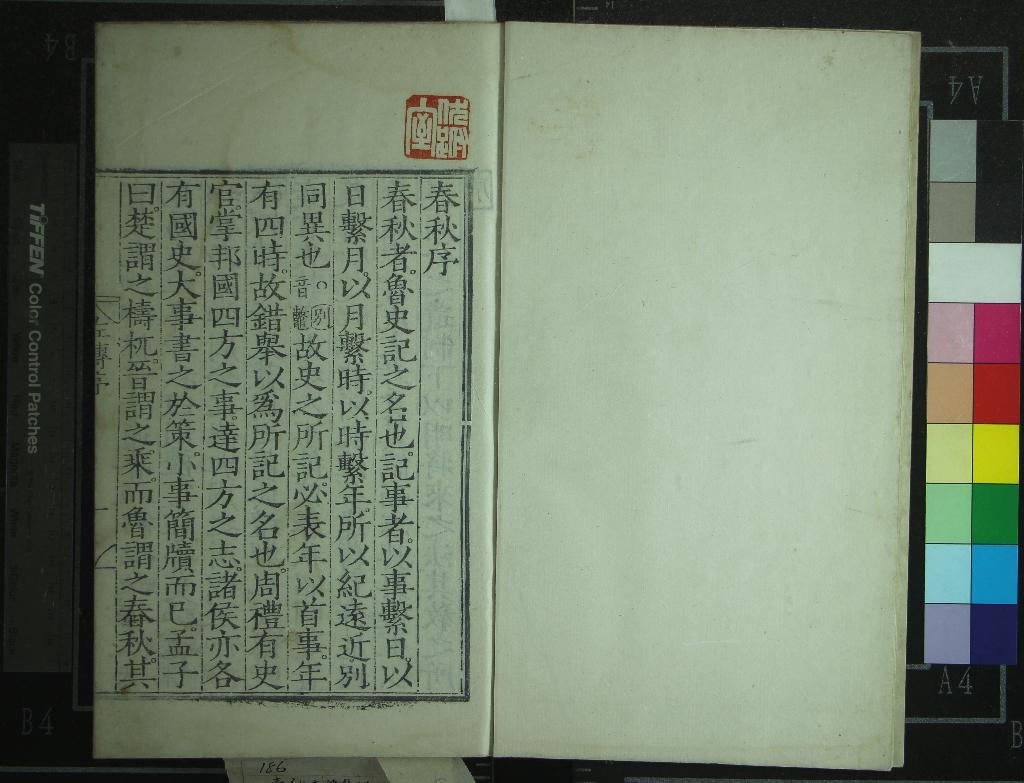 春秋序
春秋者。魯史記之名也。記事者。以事繫日。以
日繫月。以月繫時。以時繫年。所以紀遠近。別
同異也。○別音鼈故史之所記。必表年以首事。年
有四時。故錯舉以為所記之名也。周禮有史
官。掌邦國四方之事。達四方之志。諸侯亦各
有國史。大事書之於策。小事簡牘而已。孟子
曰。楚謂之檮杌。晉謂之乘。而魯謂之春秋。其
左傳序
一
TIFFEN Color Control Patches
A4
A4
B4
B4
186